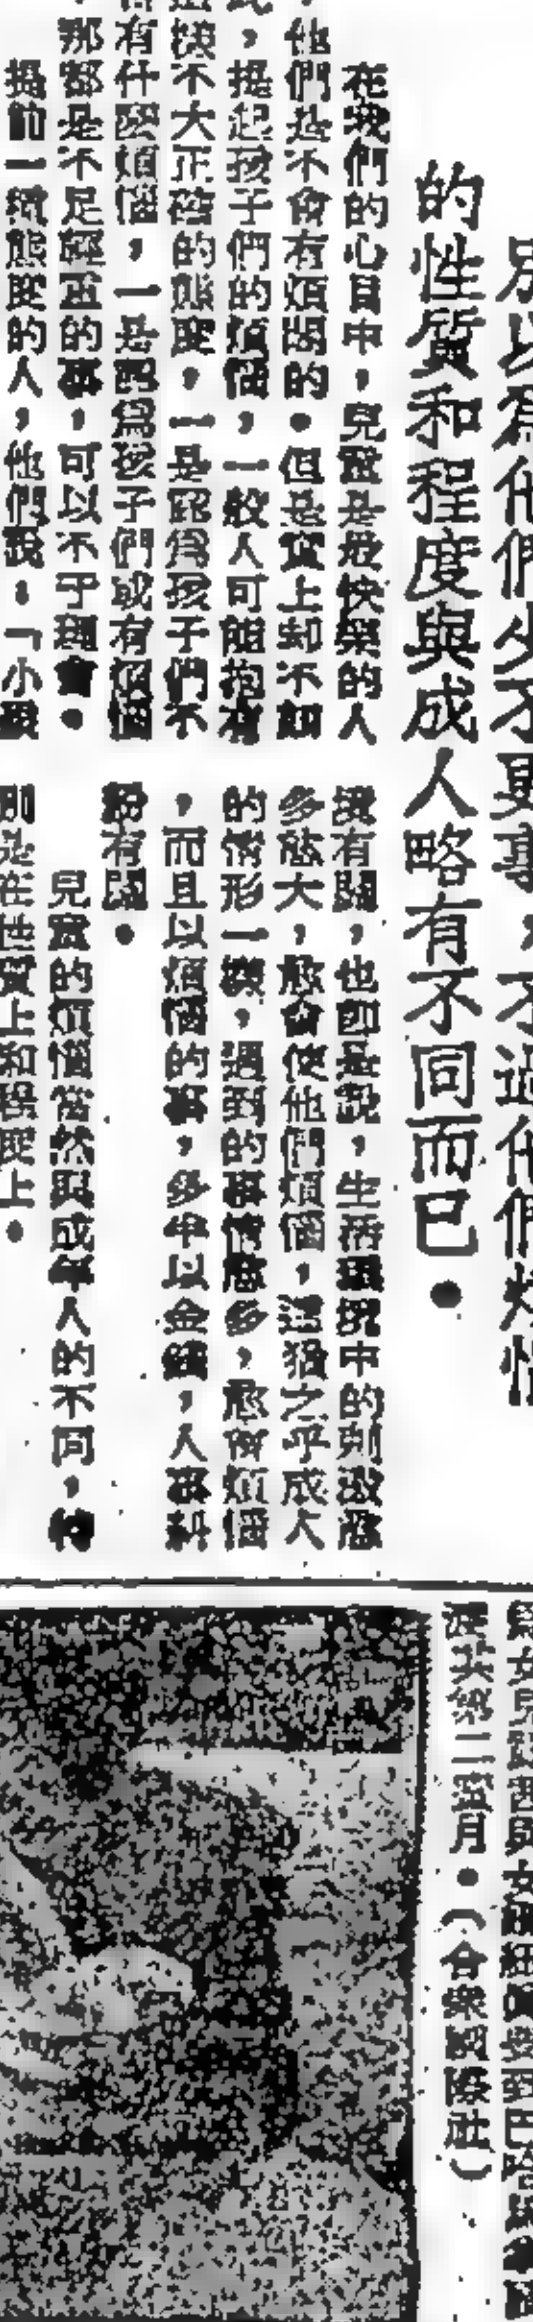 別以為他們少不更事，不過他們煩惱
的性質和程度與成人略有不同而已。
在我們的心目中，兒童是最快樂的人
，他們是不會有煩悶的。但是實上却不如
此，提起孩子們的煩惱，一般人可能抱有
這樣不大正確的態度，一是認為孩子們不
會有什麼煩惱，一是認為孩子們或有煩惱
，那都是不足輕重的事，可以不予理會。
搗前一種態度的人，他們說：「小孩
境有關，也即是說，生活環境中的刺激愈
多愈大，愈會使他們煩惱，這猶之乎成人
的情形一樣，遇到的事情愈多，愈會煩惱
，而且以煩惱的事，多半以金錢，人事糾
紛有關。
兒童的煩惱當然與成年人的不同，特
別是在性質上和程度上。
渡其第二蜜月。（合衆國際社）